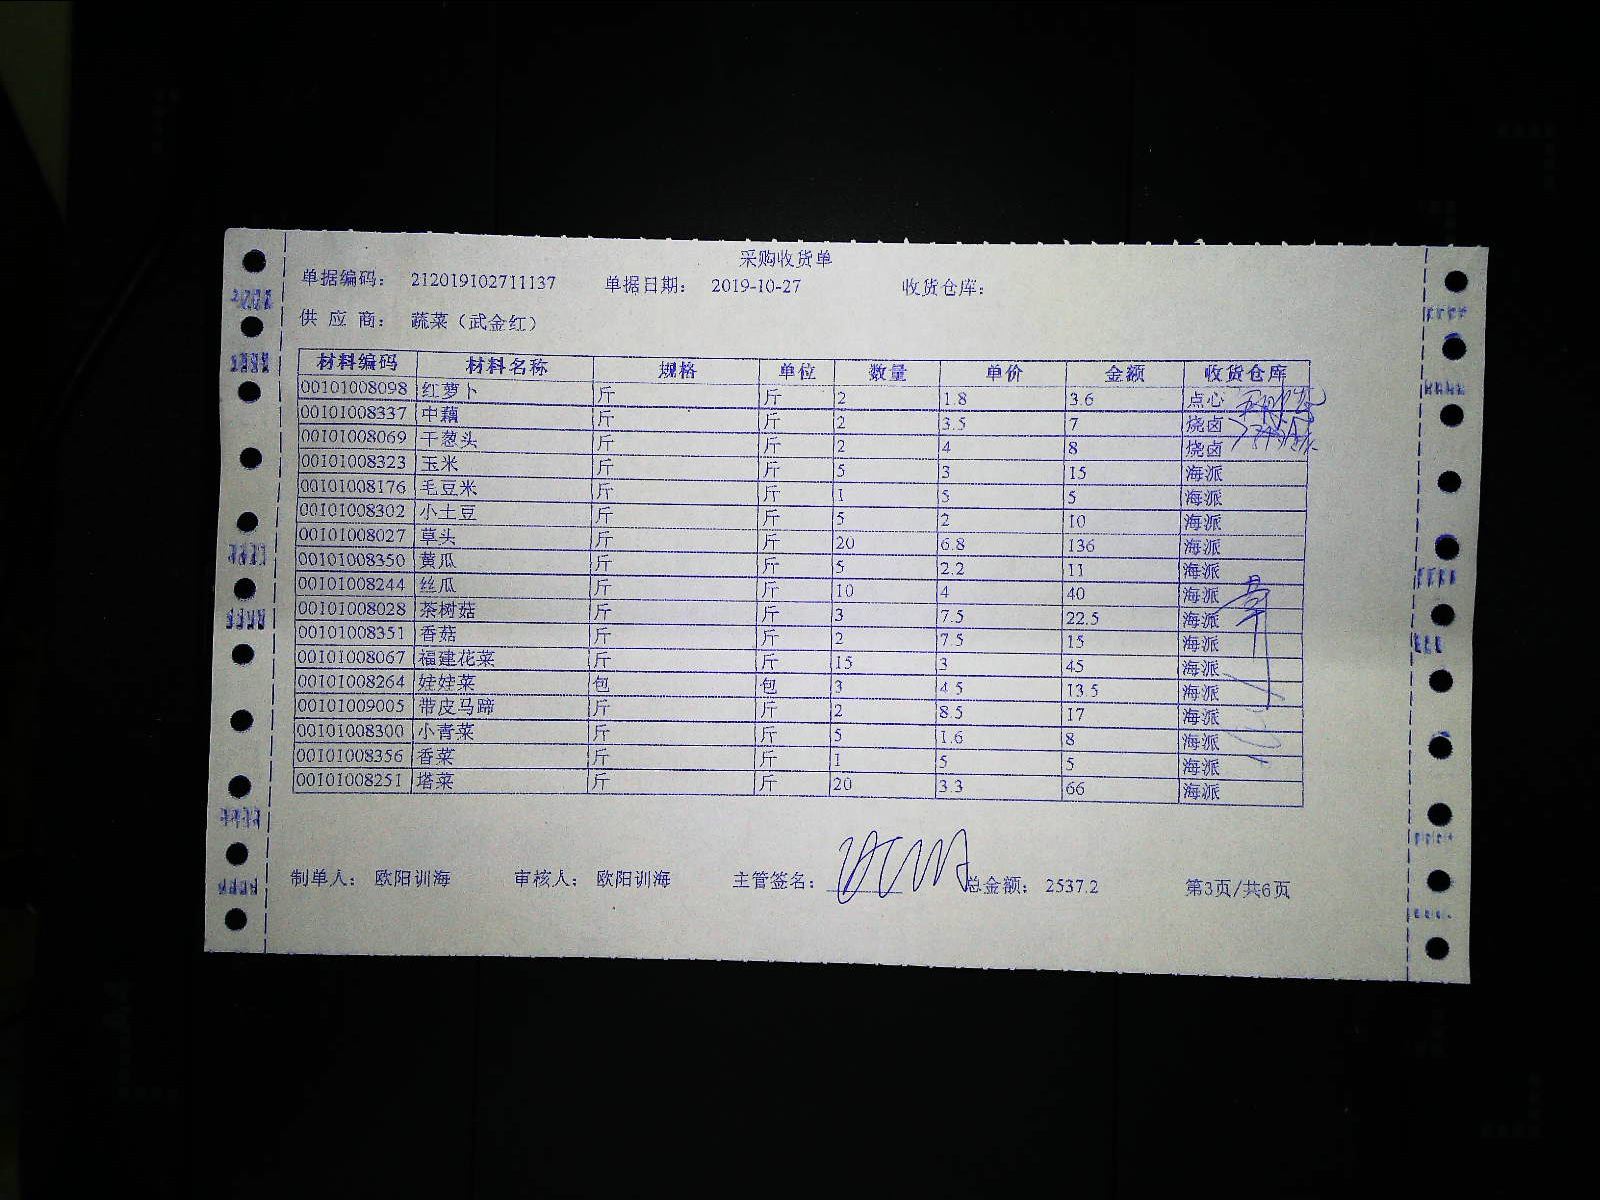 采购收货单
单据编码： 212019102711137 单据日期： 2019-10-27 收货仓库：
供 应 商： 蔬菜（武金红）
材料编码 材料名称 规格 单位 数量 单价 金额 收货仓库
00101008098 红萝卜 斤 斤 2 1.8 3.6 点心
00101008337 中藕 斤 斤 2 3.5 7 烧卤
00101008069 干葱头 斤 斤 2 4 8 烧卤
00101008323 玉米 斤 斤 5 3 15 海派
00101008176 毛豆米 斤 斤 1 5 5 海派
00101008302 小土豆 斤 斤 5 2 10 海派
00101008027 草头 斤 斤 20 6.8 136 海派
00101008350 黄瓜 斤 斤 5 2.2 11 海派
00101008244 丝瓜 斤 斤 10 4 40 海派
00101008028 茶树菇 斤 斤 3 7.5 22.5 海派
00101008351 香菇 斤 斤 2 7.5 15 海派
00101008067 福建花菜 斤 斤 15 3 45 海派
00101008264 娃娃菜 包 包 3 4.5 13.5 海派
00101009005 带皮马蹄 斤 斤 2 8.5 17 海派
00101008300 小青菜 斤 斤 5 1.6 8 海派
00101008356 香菜 斤 斤 1 5 5 海派
00101008251 塔菜 斤 斤 20 3.3 66 海派
制单人： 欧阳训海 审核人： 欧阳训海 主管签名： 总金额： 2537.2 第3页/共6页